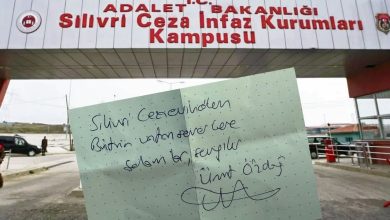 T.C.
ADALET BAKANLIĞI
Silivri Ceza İnfaz Kurumları
Kampüsü
Silivri Cezaevinden
Bütün vatanseverlere
selamlar, sevgiler
Ümit Özdağ